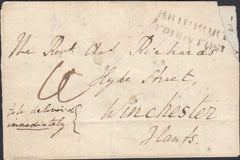 The Revd
Richards
Hyde Street,
Winchester
Hants.
to be delivered
immediately